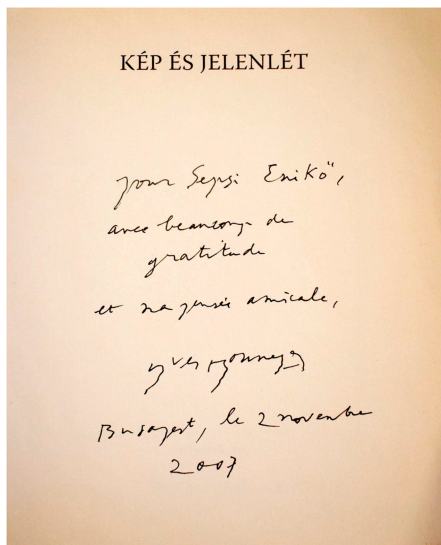 KÉP ÉS JELENLÉT
pour Sepsi Enikő,
avec beaucoup de
gratitude
et ma pensée amicale,
Yves Bonnefoy
Budapest, le 2 novembre
2007